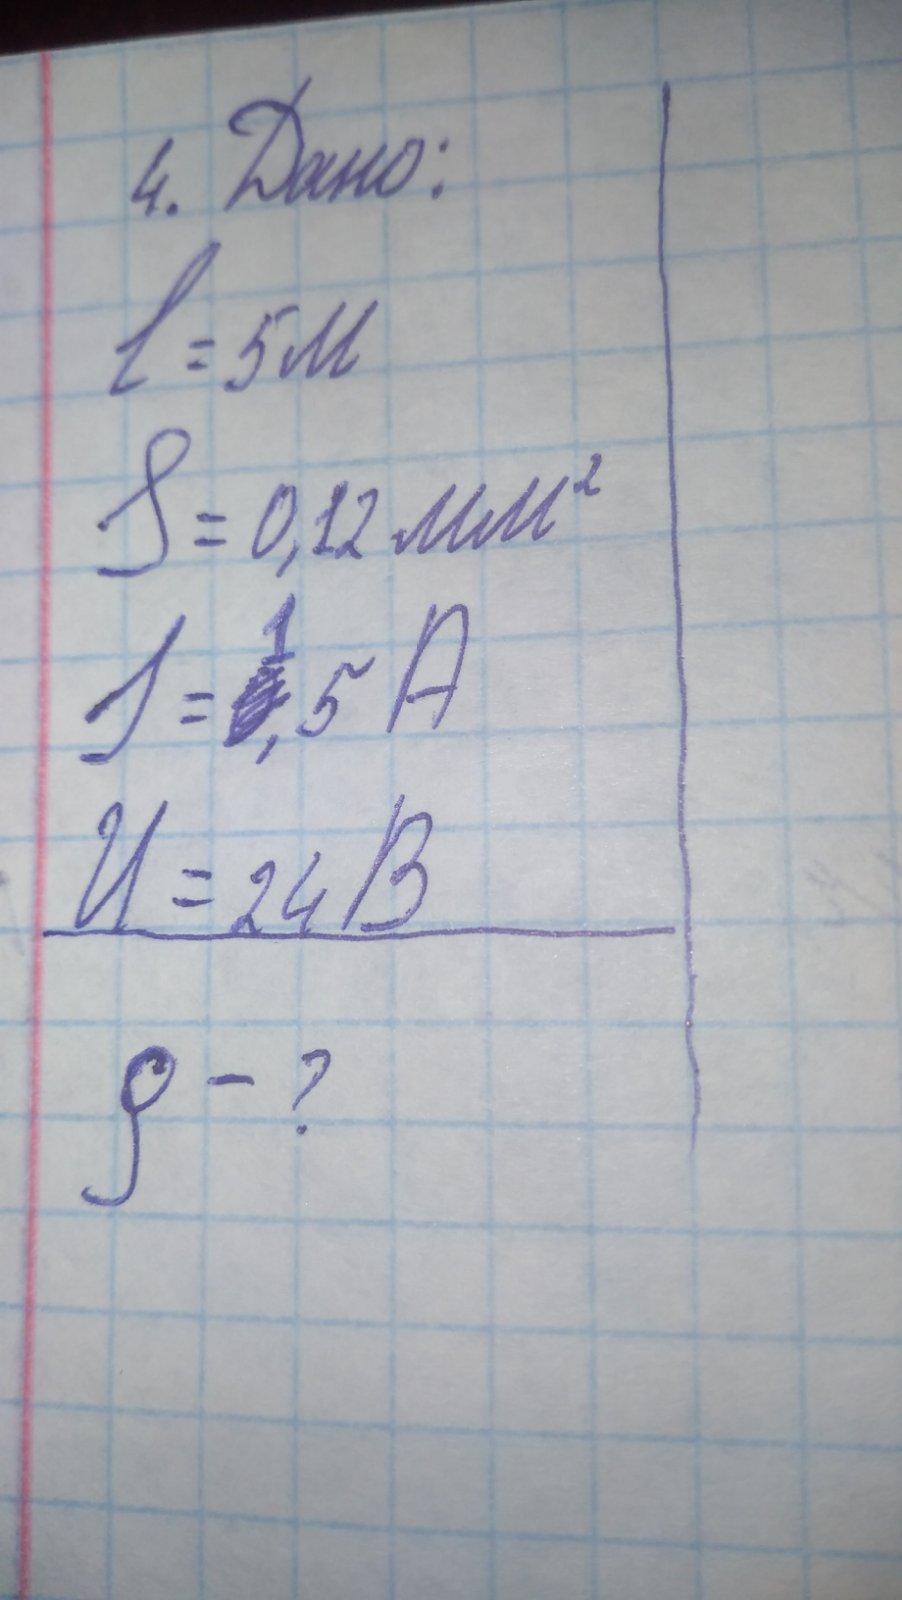 4. Дано:
l = 5м
S = 0,12 мм²
I = 1,5 А
U = 24 В
ρ - ?